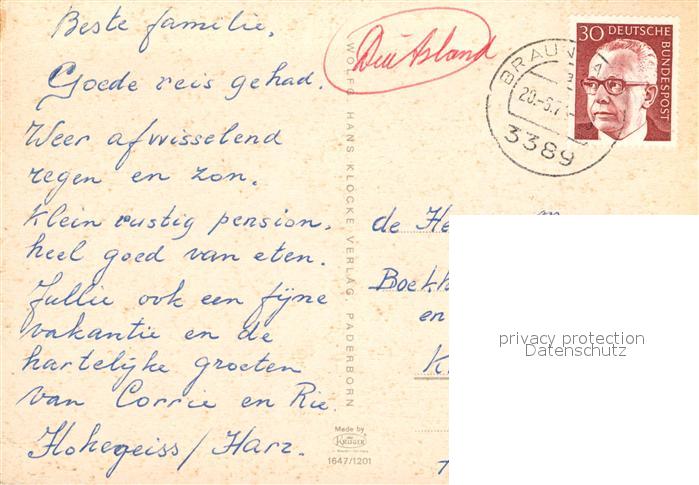 Beste familie,
Goede reis gehad.
Weer afwisselend
regen en zon.
Klein rustig pension,
heel goed van eten.
Jullie ook een fijne
vakantie en de
hartelijke groeten
van Corrie en Rie.
Hohegeiss / Harz.
WOLFG. HANS KLOCKE VERLAG, PADERBORN
Made by
KRÜGER
1647/1201
Deutsland
30 DEUTSCHE
BUNDESPOST
BRAUN
20.-6.7
3389
de He
Boekh
en
K
privacy protection
Datenschutz